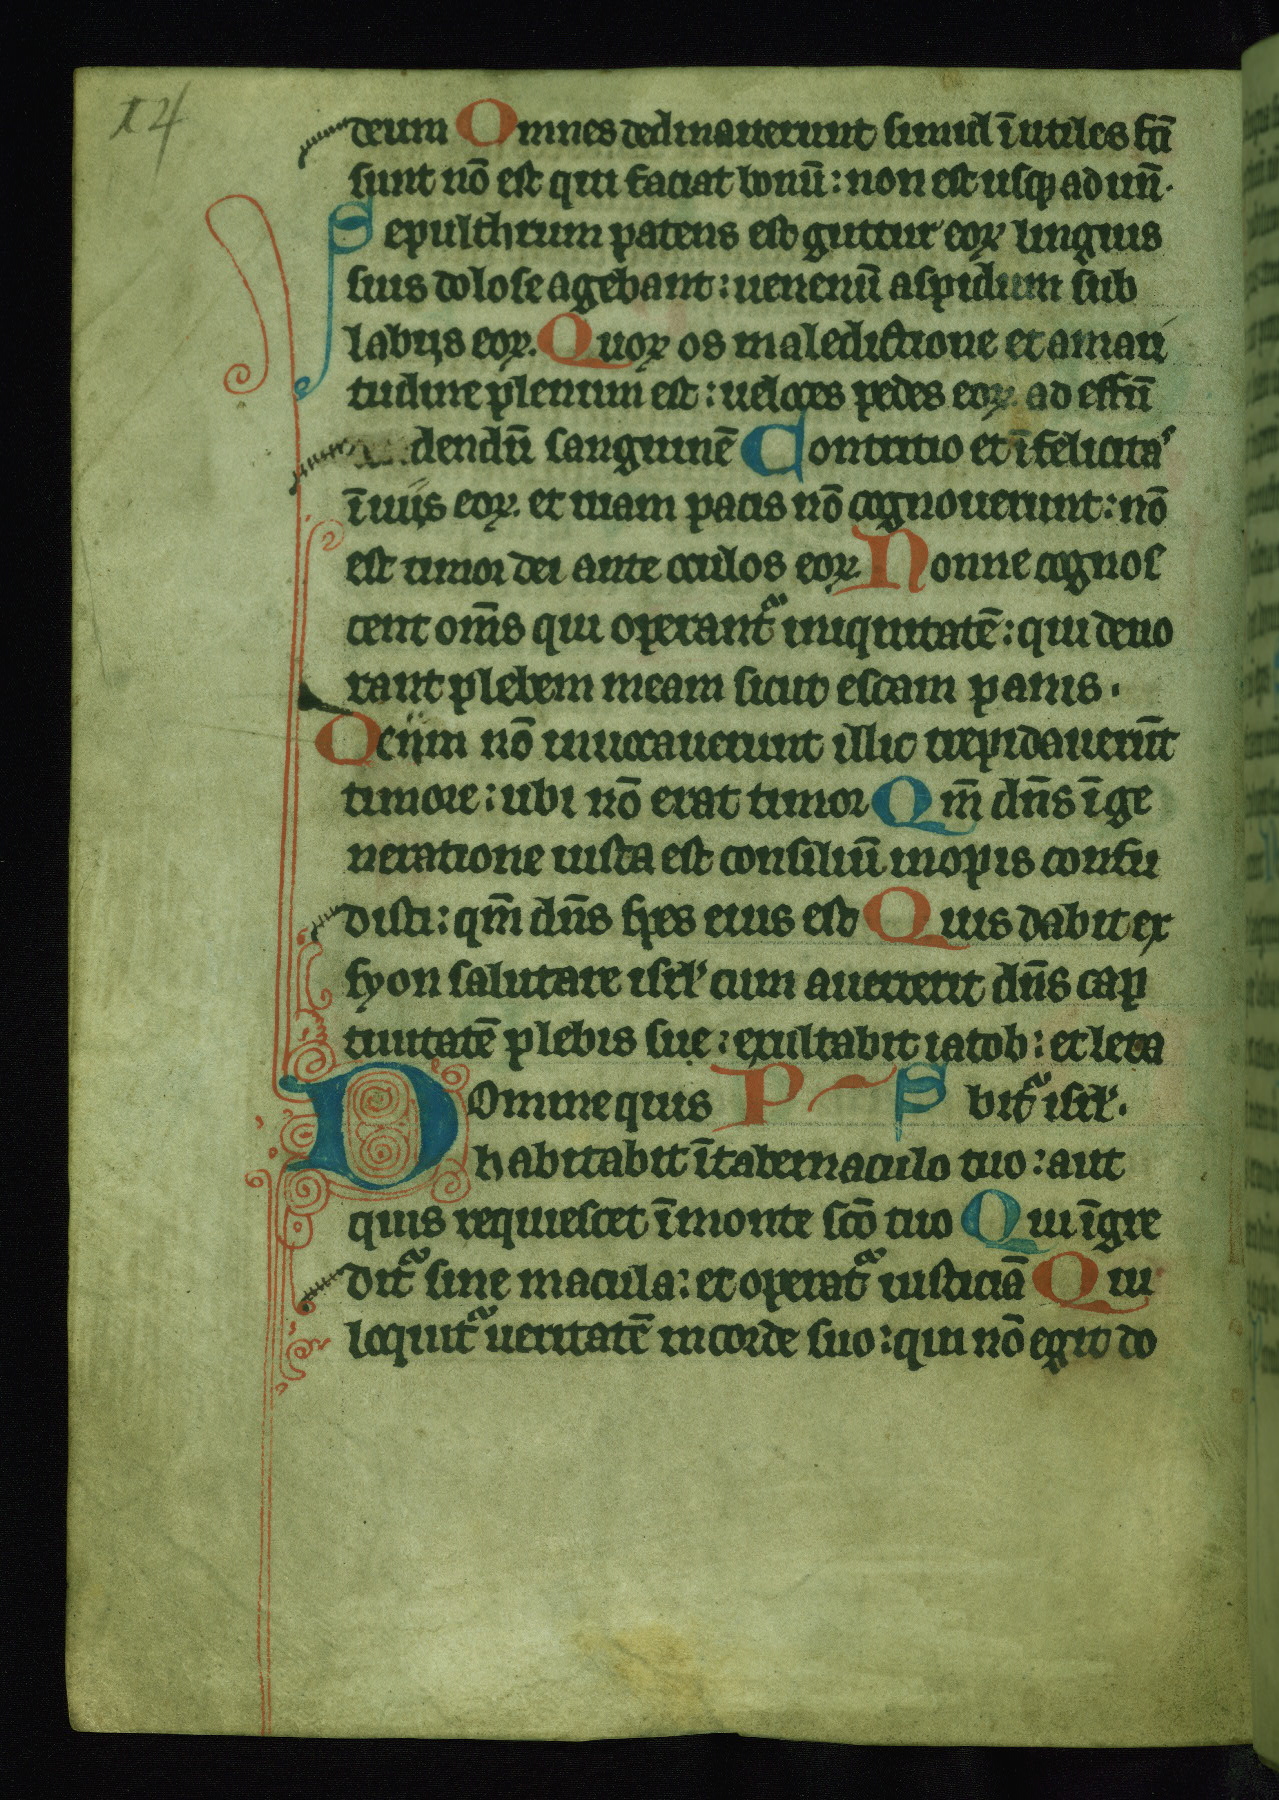 14
deum Omnes declinauerunt simul īutiles fc̄i
sunt nō est qui faciat bonū: non est usq; ad un̄.
Sepulchrum patens est guttur eoꝝ linguis
suis dolose agebant: uenenū aspidum sub
labijs eoꝝ. Quoꝝ os maledictione et amari
tudine plenum est: ueloces pedes eoꝝ ad effū
dendū sanguinē Contritio et īfelicita
ī uijs eoꝝ. et uiam pacis nō cognouerunt: nō
est timor dei ante oculos eoꝝ. Nonne cognos
cent om̄s qui operant᷑ iniquitatē: qui deuo
rant plebem meam sicut escam panis.
Deum nō inuocauerunt illic trepidauerūt
timore: ubi nō erat timor Qm̄ dn̄s ī ge
neratione iusta est consiliū inopis confu
disti: qm̄ dn̄s spes eius est Quis dabit ex
syon salutare isrl' cum auerterit dn̄s cap
tiuitatē plebis sue: exultabit iacob: et leta
Domine quis PS bit᷑ isrl'.
habitabit ī tabernaculo tuo: aut
quis requiescet ī monte sc̄o tuo Qui īgre
dit᷑ sine macula: et operat᷑ iusticiā Qui
loquit᷑ ueritatē in corde suo: qui nō egit do